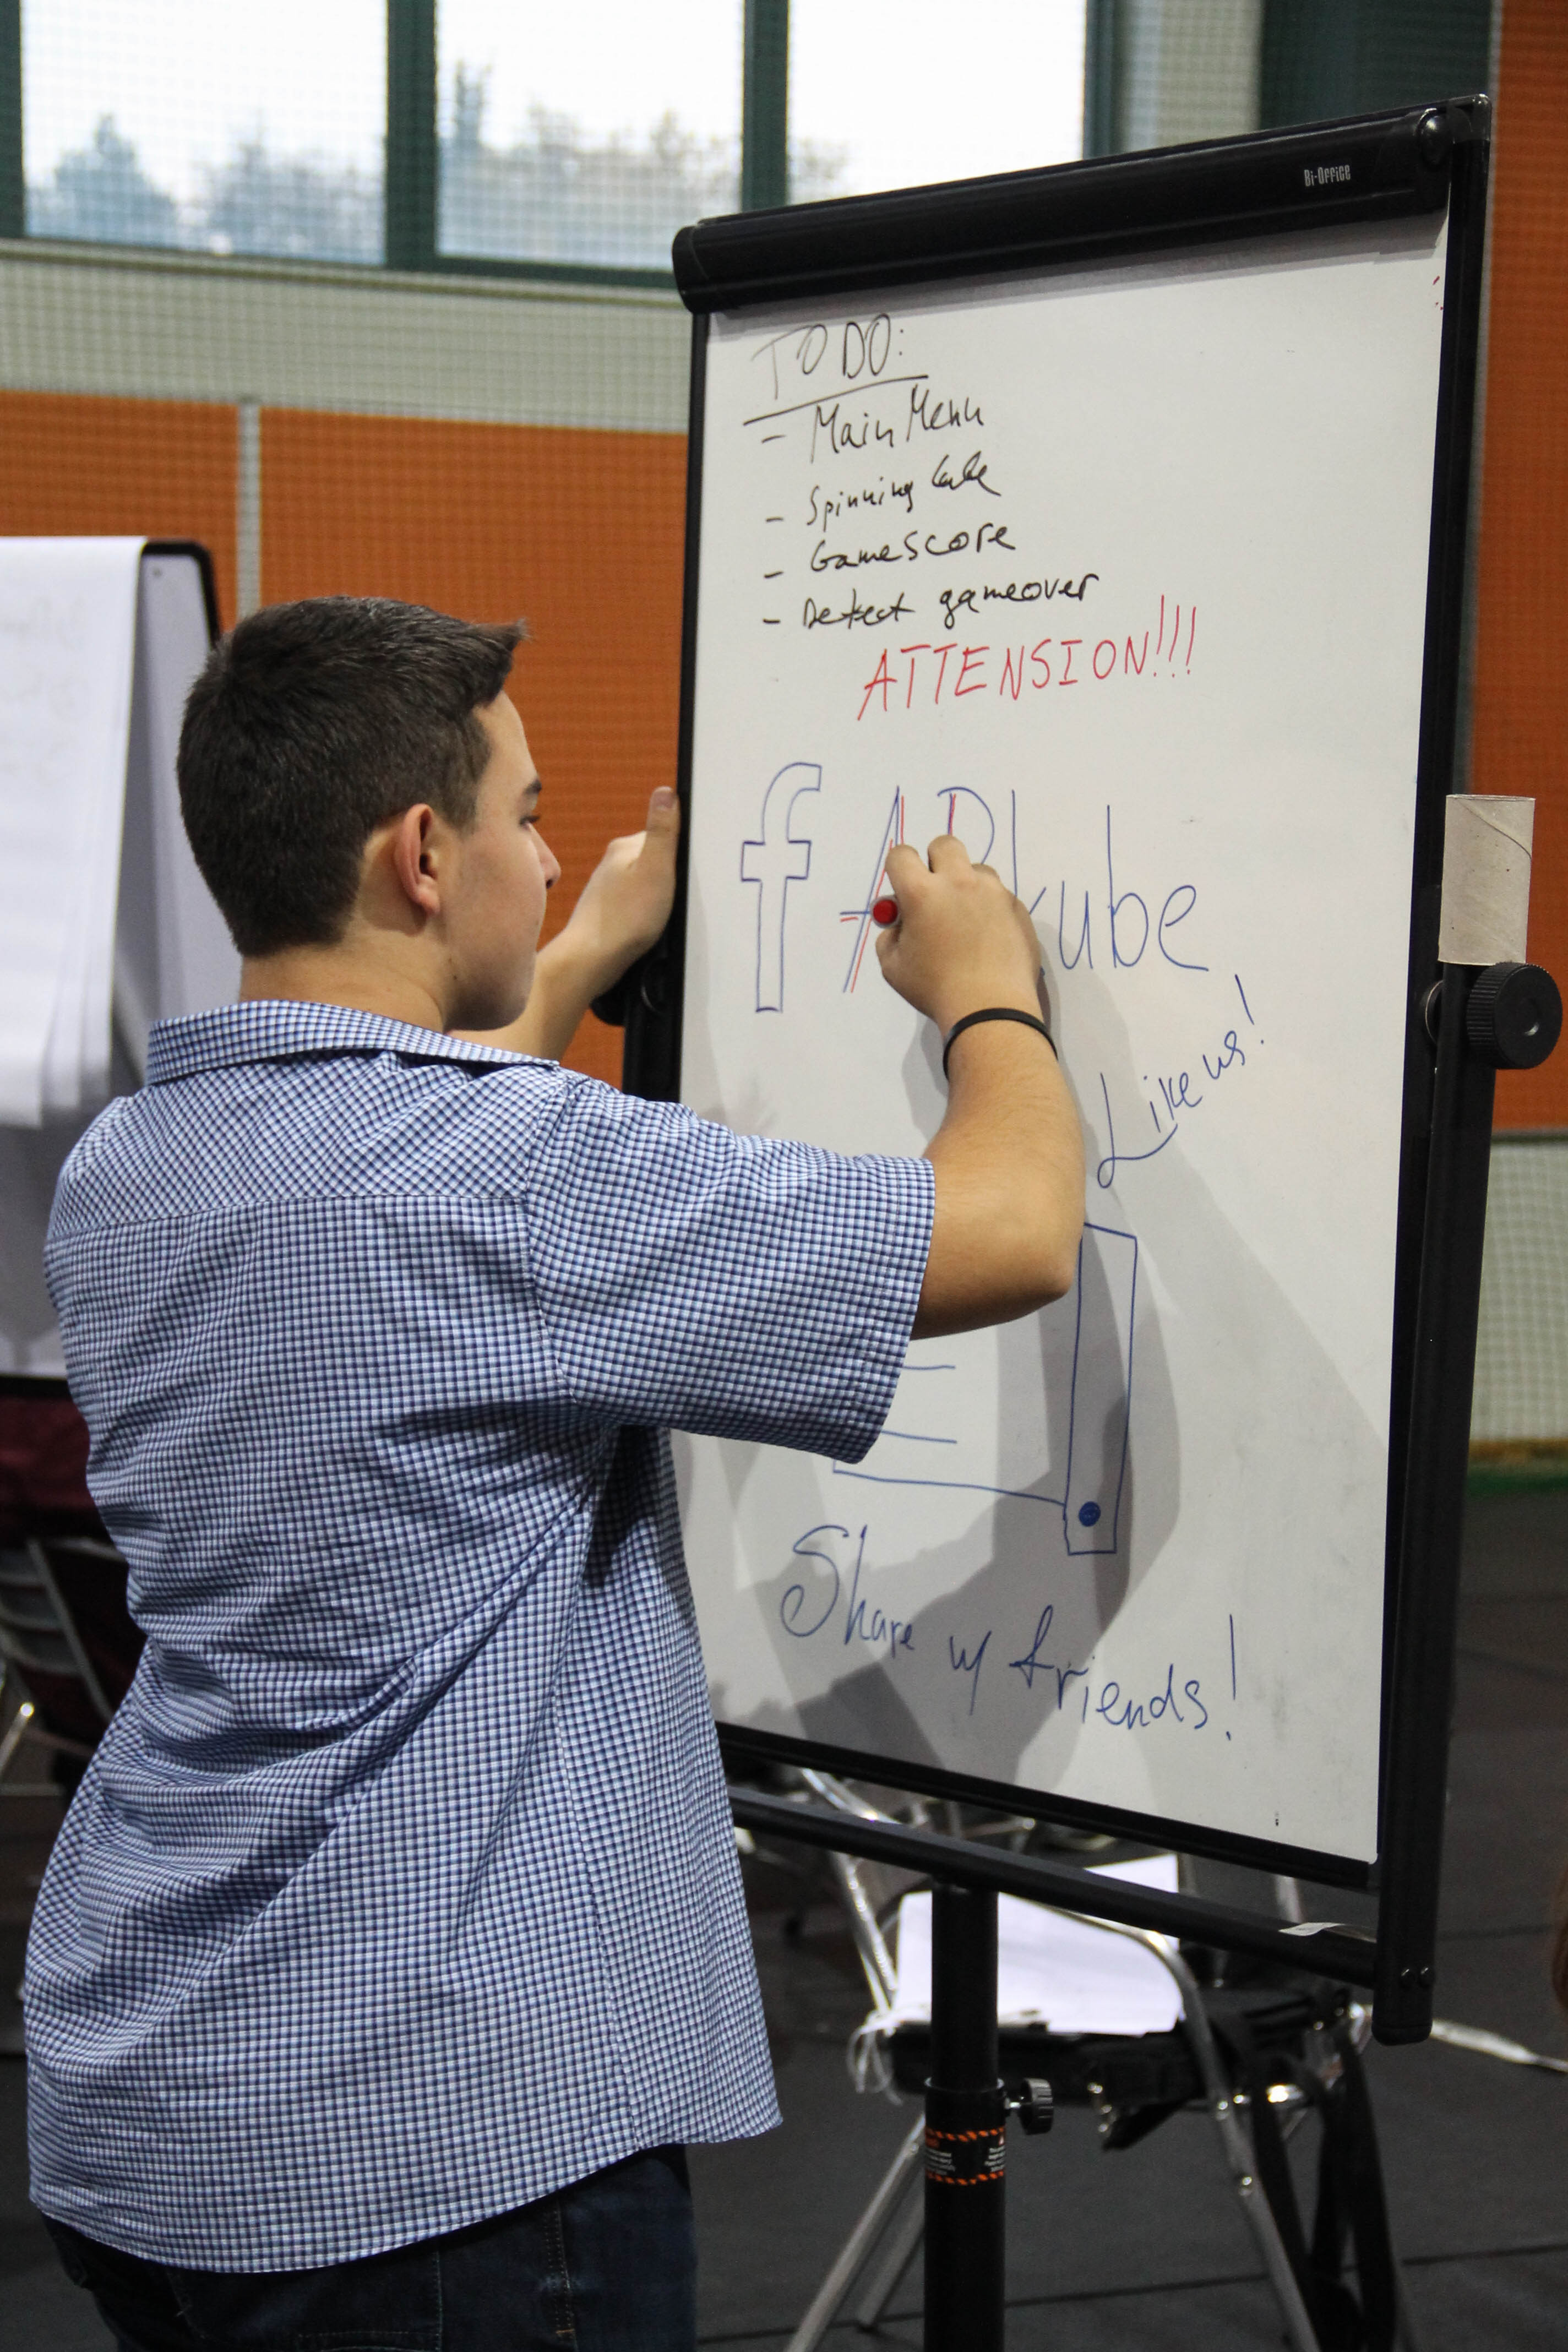 Bi-Office
TO DO:
- Main Menu
- Spinning Cube
- GameScore
- Detect gameover
ATTENSION!!!
f ARkube
Like us!
Share w/ friends!